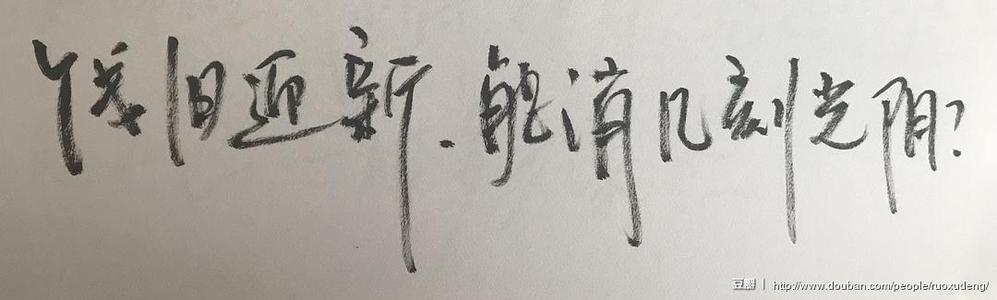 饯旧迎新.能消几刻光阴?
豆瓣 | http://www.douban.com/people/ruoxudeng/